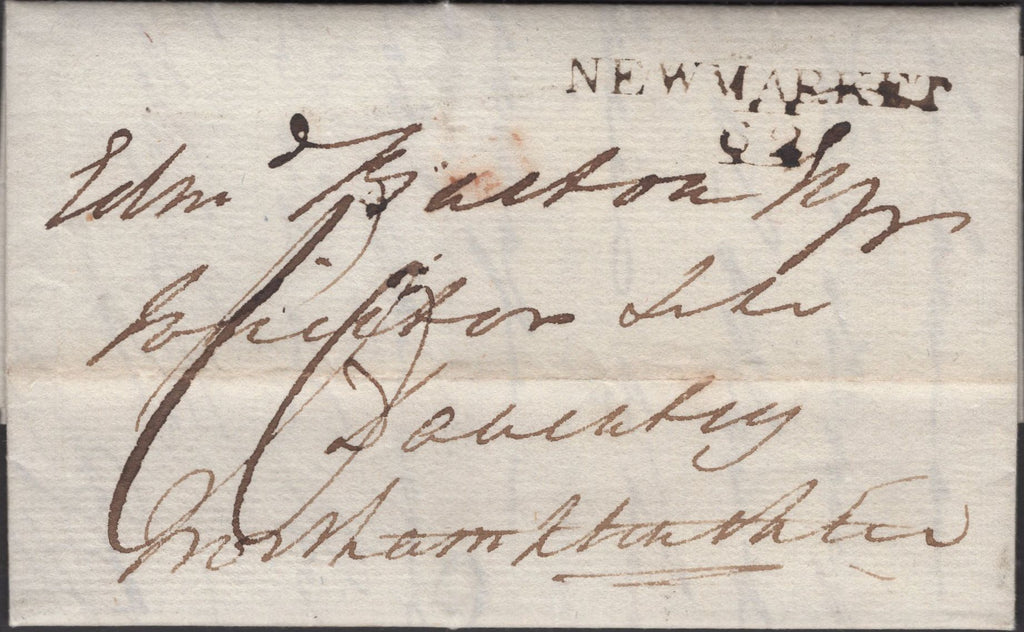 NEWMARKET
62
Edm.d Burton Esqr
Solicitor &c &c
Daventry
Northamptonshire